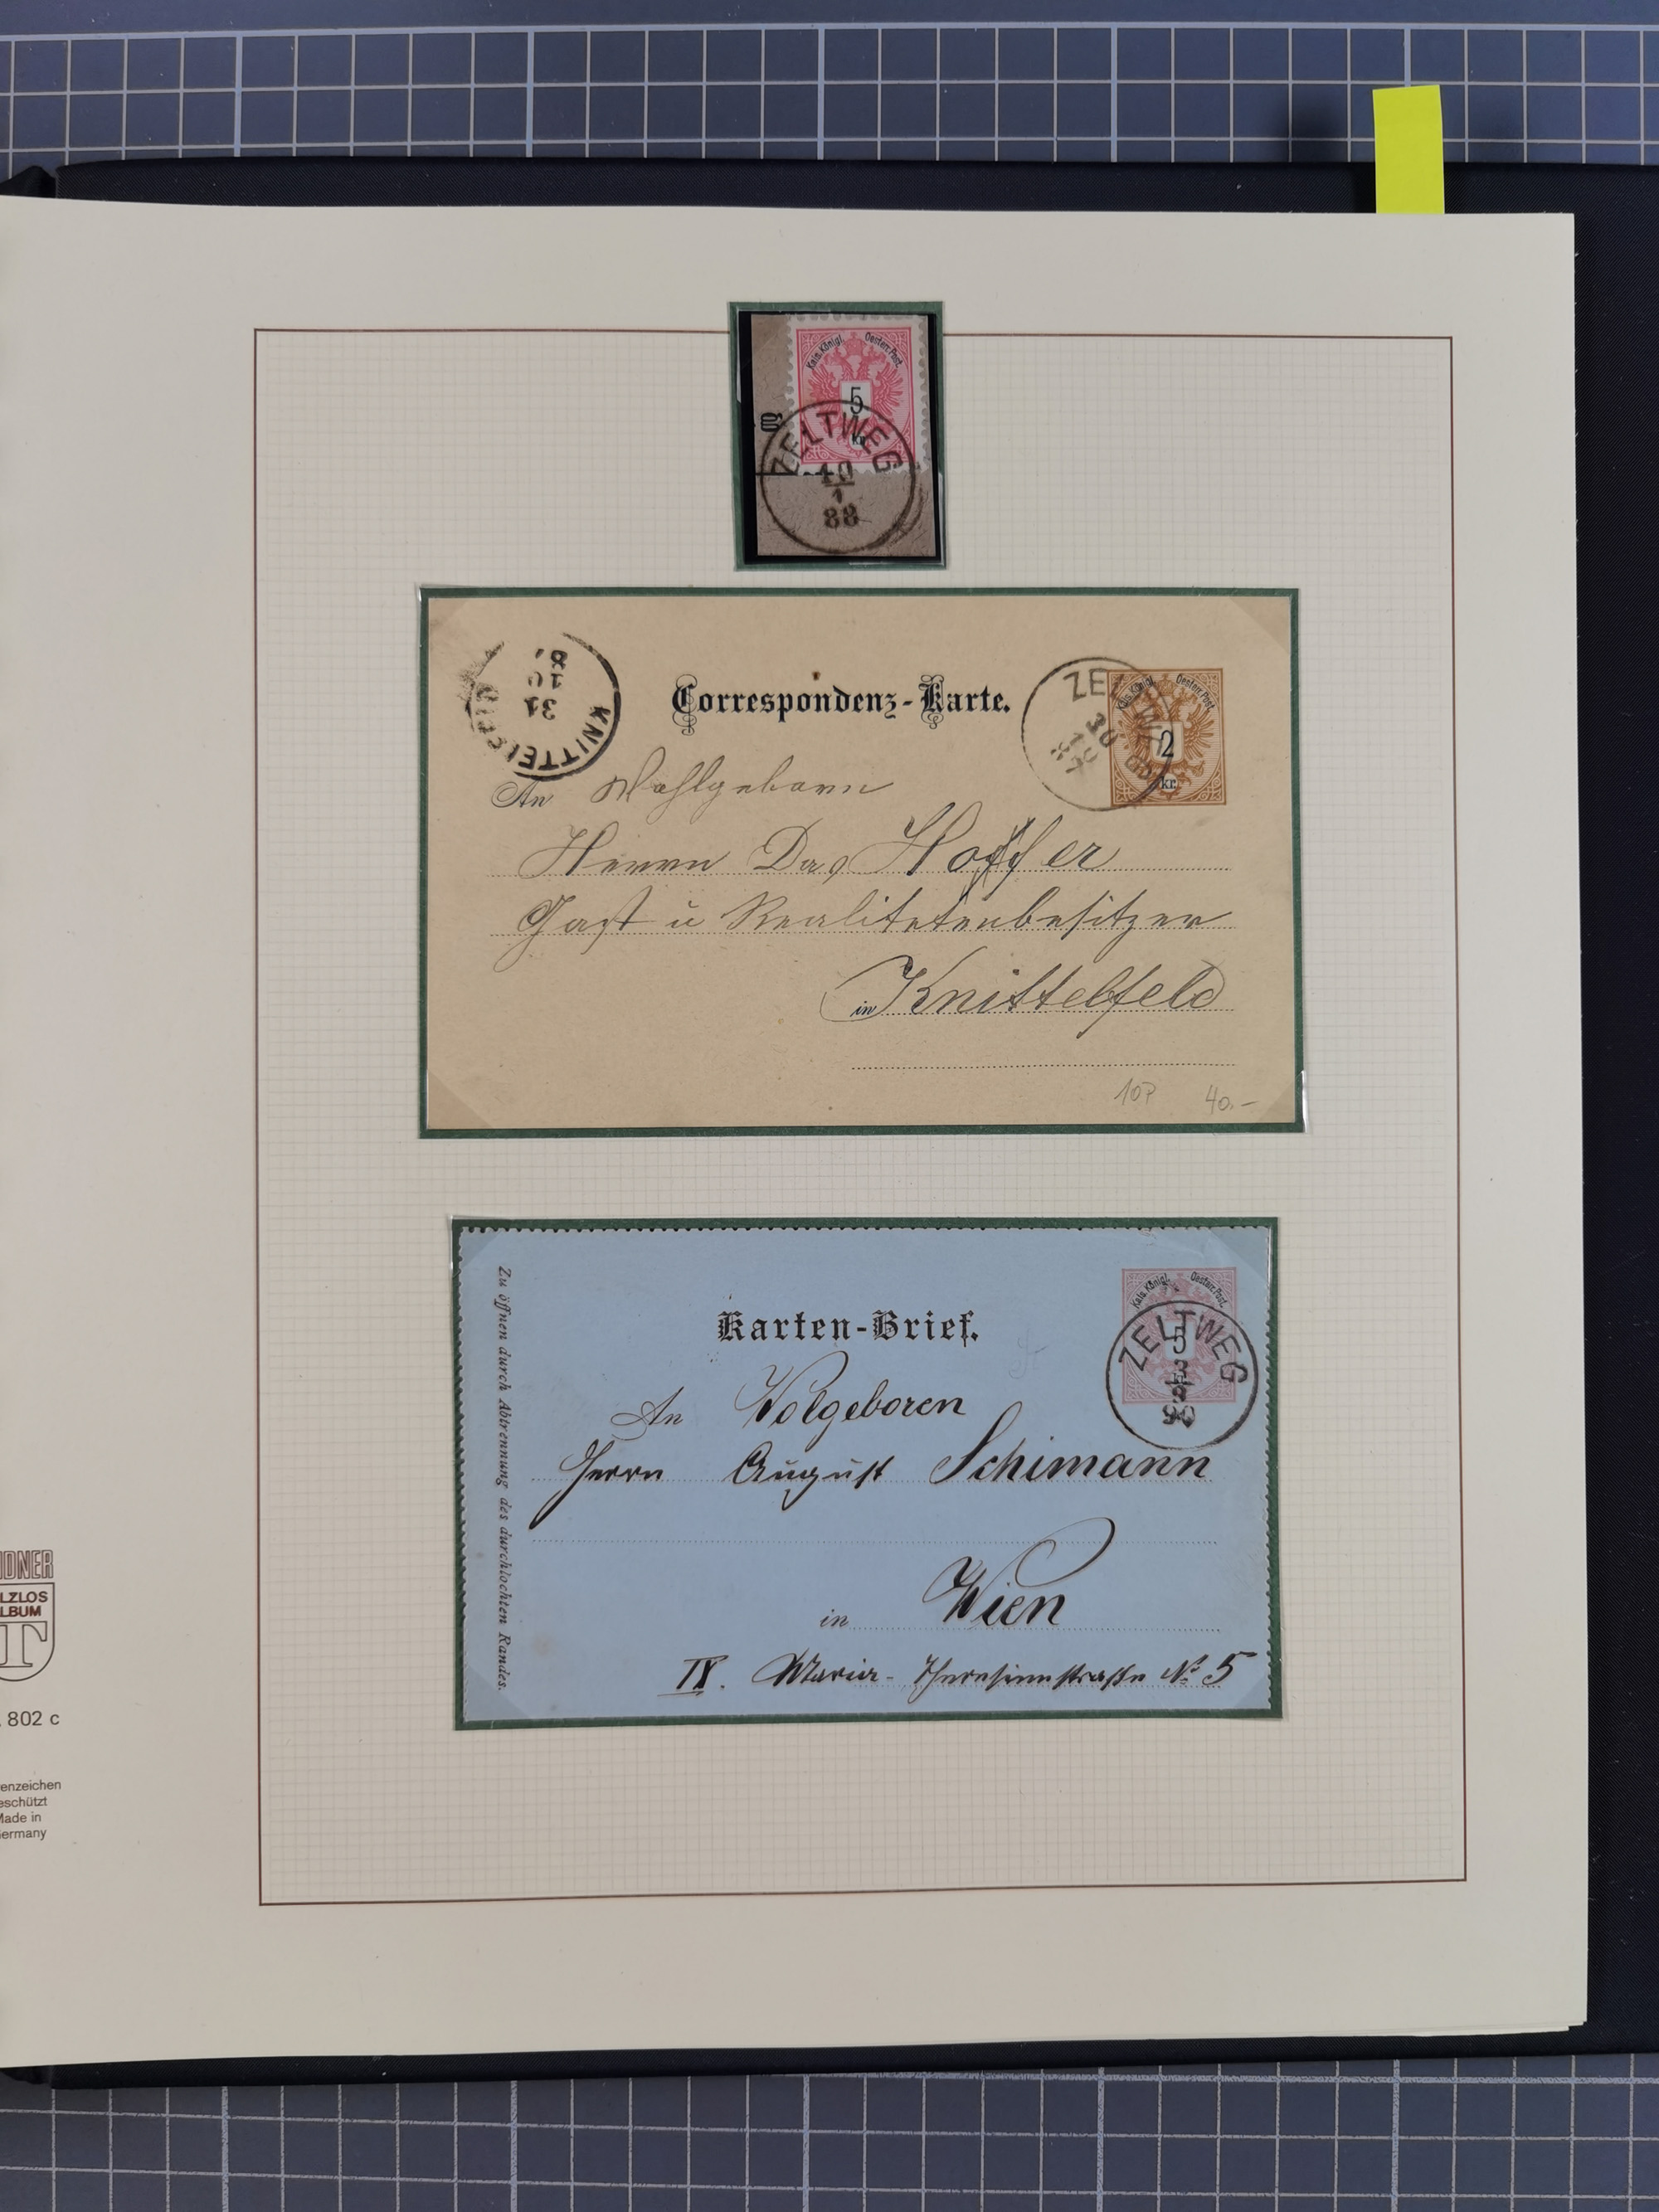 Kais. Königl. Oesterr. Post.
5
kr.
60
ZELTWEG
10
1
88
KNITTELFELD
31
10
8
Correspondenz-Karte.
ZELTWEG
30
10
Kais. Königl. Oesterr. Post.
2
kr.
An Wohlgeborn
Herrn Hoffer
Gast u Realitetenbesitzer
in Knittelfeld
10P 40.-
Zu öffnen durch Abtrennung des durchlochten Randes.
Karten-Brief.
Kais. Königl. Oesterr. Post.
5
ZELTWEG
3
90
An Wolgeboren
Herrn August Schimann
in Wien
IX. Maria-Theresienstraße No 5
DNER
LZLOS
LBUM
T
802 c
enzeichen
eschützt
Made in
ermany